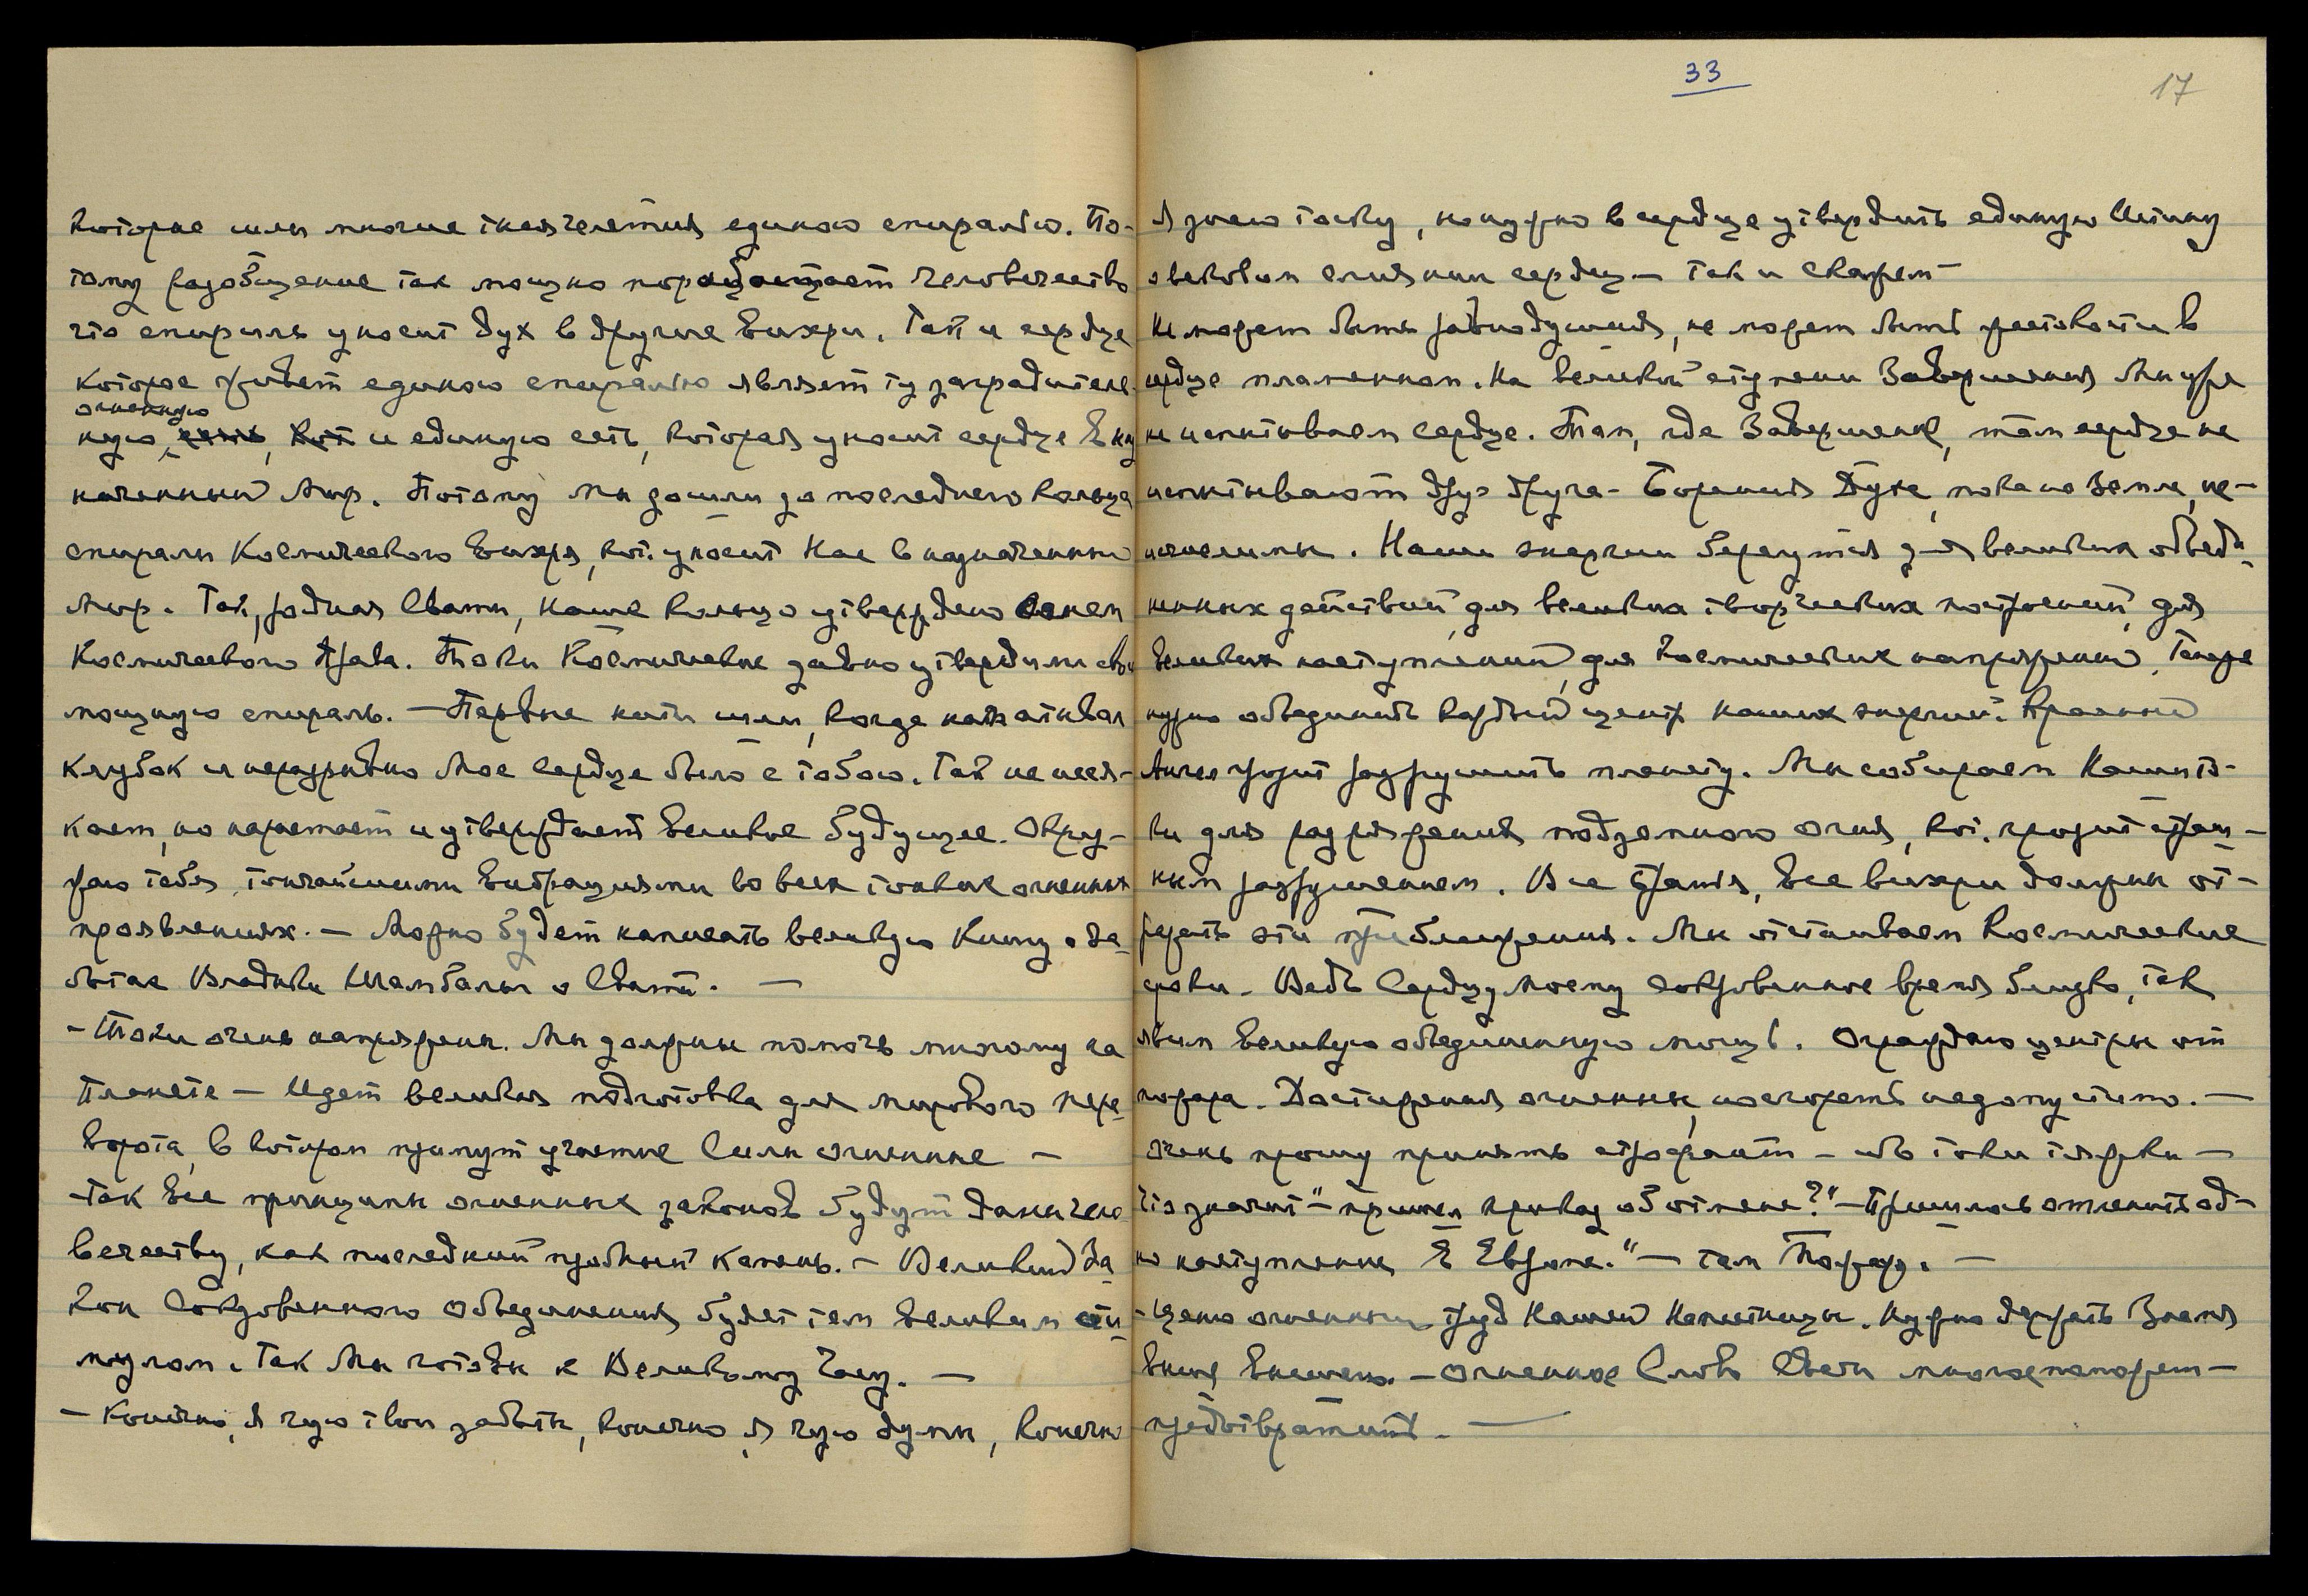 которые шли многие тысячелетия единою спиралью. По-
тому разобщение так мощно порабощает человечество
что спираль уносит дух в другие вихри. Так и сердце
которое живет единою спиралью являет ту заградитель-
огненную
ную, и единую сеть, которая уносит сердце в на
наченный Мир. Потому мы дошли до последнего кольца
спирали Космического вихря, кот. уносит Нас в назначенный
Мир. Так, родная Свати, наше кольцо утверждено
Космического Права. Токи Космические давно утвердили свою
мощную спираль. — Первые нити шли, когда
клубок и неразрывно Мое Сердце было с тобою. Так не исся-
кает, но нарастает и утверждает великое будущее. Окру-
жаю тебя тончайшими вибрациями во всех тонких огненных
проявлениях. — Можно будет написать великую Книгу о За-
ботах Владыки Шамбалы о Свати. —
— Токи очень напряжены. Мы должны помочь многому на
планете — Идет великая подготовка для мирового пере-
ворота, в котором примут участие Силы огненные —
— Так все принципы огненных законов будут даны чело-
вечеству, как последний пробный камень. — Великий За-
кон Сокровенного Объединения будет тем великим сти-
мулом. Так Мы готовы к Великому Часу. —
— Конечно, Я чую твои заботы, конечно, Я чую думы, конечно
33
17
Я знаю тоску, но нужно в сердце утвердить единую Истину
о вековом слиянии сердец — так и скажем —
Не может быть равнодушия, не может быть жестокости в
сердце пламенном. На великой ступени Завершения Мы уже
не испытываем Сердце. Там, где Завершение, там сердце не
испытывают друг друга — Борения Духа, пока на Земле, не-
исчислимы. Наши энергии берегутся для великих объеди-
ненных действий, для великих творческих построений, для
великих наступлений, для космических напряжений. Теперь
нужно объединить каждый центр наших энергий. Красный
Ангел грозит разрушить планету. Мы собираем Наши то-
ки для разряжения подземного огня, кот. грозит страш-
ным разрушением. Все Братья, все вихри должны от-
резать эти приближения. Мы отстаиваем Космические
сроки. Ведь Сердцу Моему сокровенное время близко, так
явим великую объединенную мощь. Ограждаю центры от
пожара. Достижения огненные, но сгорать недопустимо. —
Очень прошу принять строфант — ибо токи тяжки —
Что значит "— пришел приказ об отмене?" — Пришлось отменить од-
но наступление в Европе." — там Пожар. —
— Ценю огненный труд Нашей Наместницы. Нужно держать Знамя
выше — Огненное Слово Свати многое поможет —
предотвратить. —